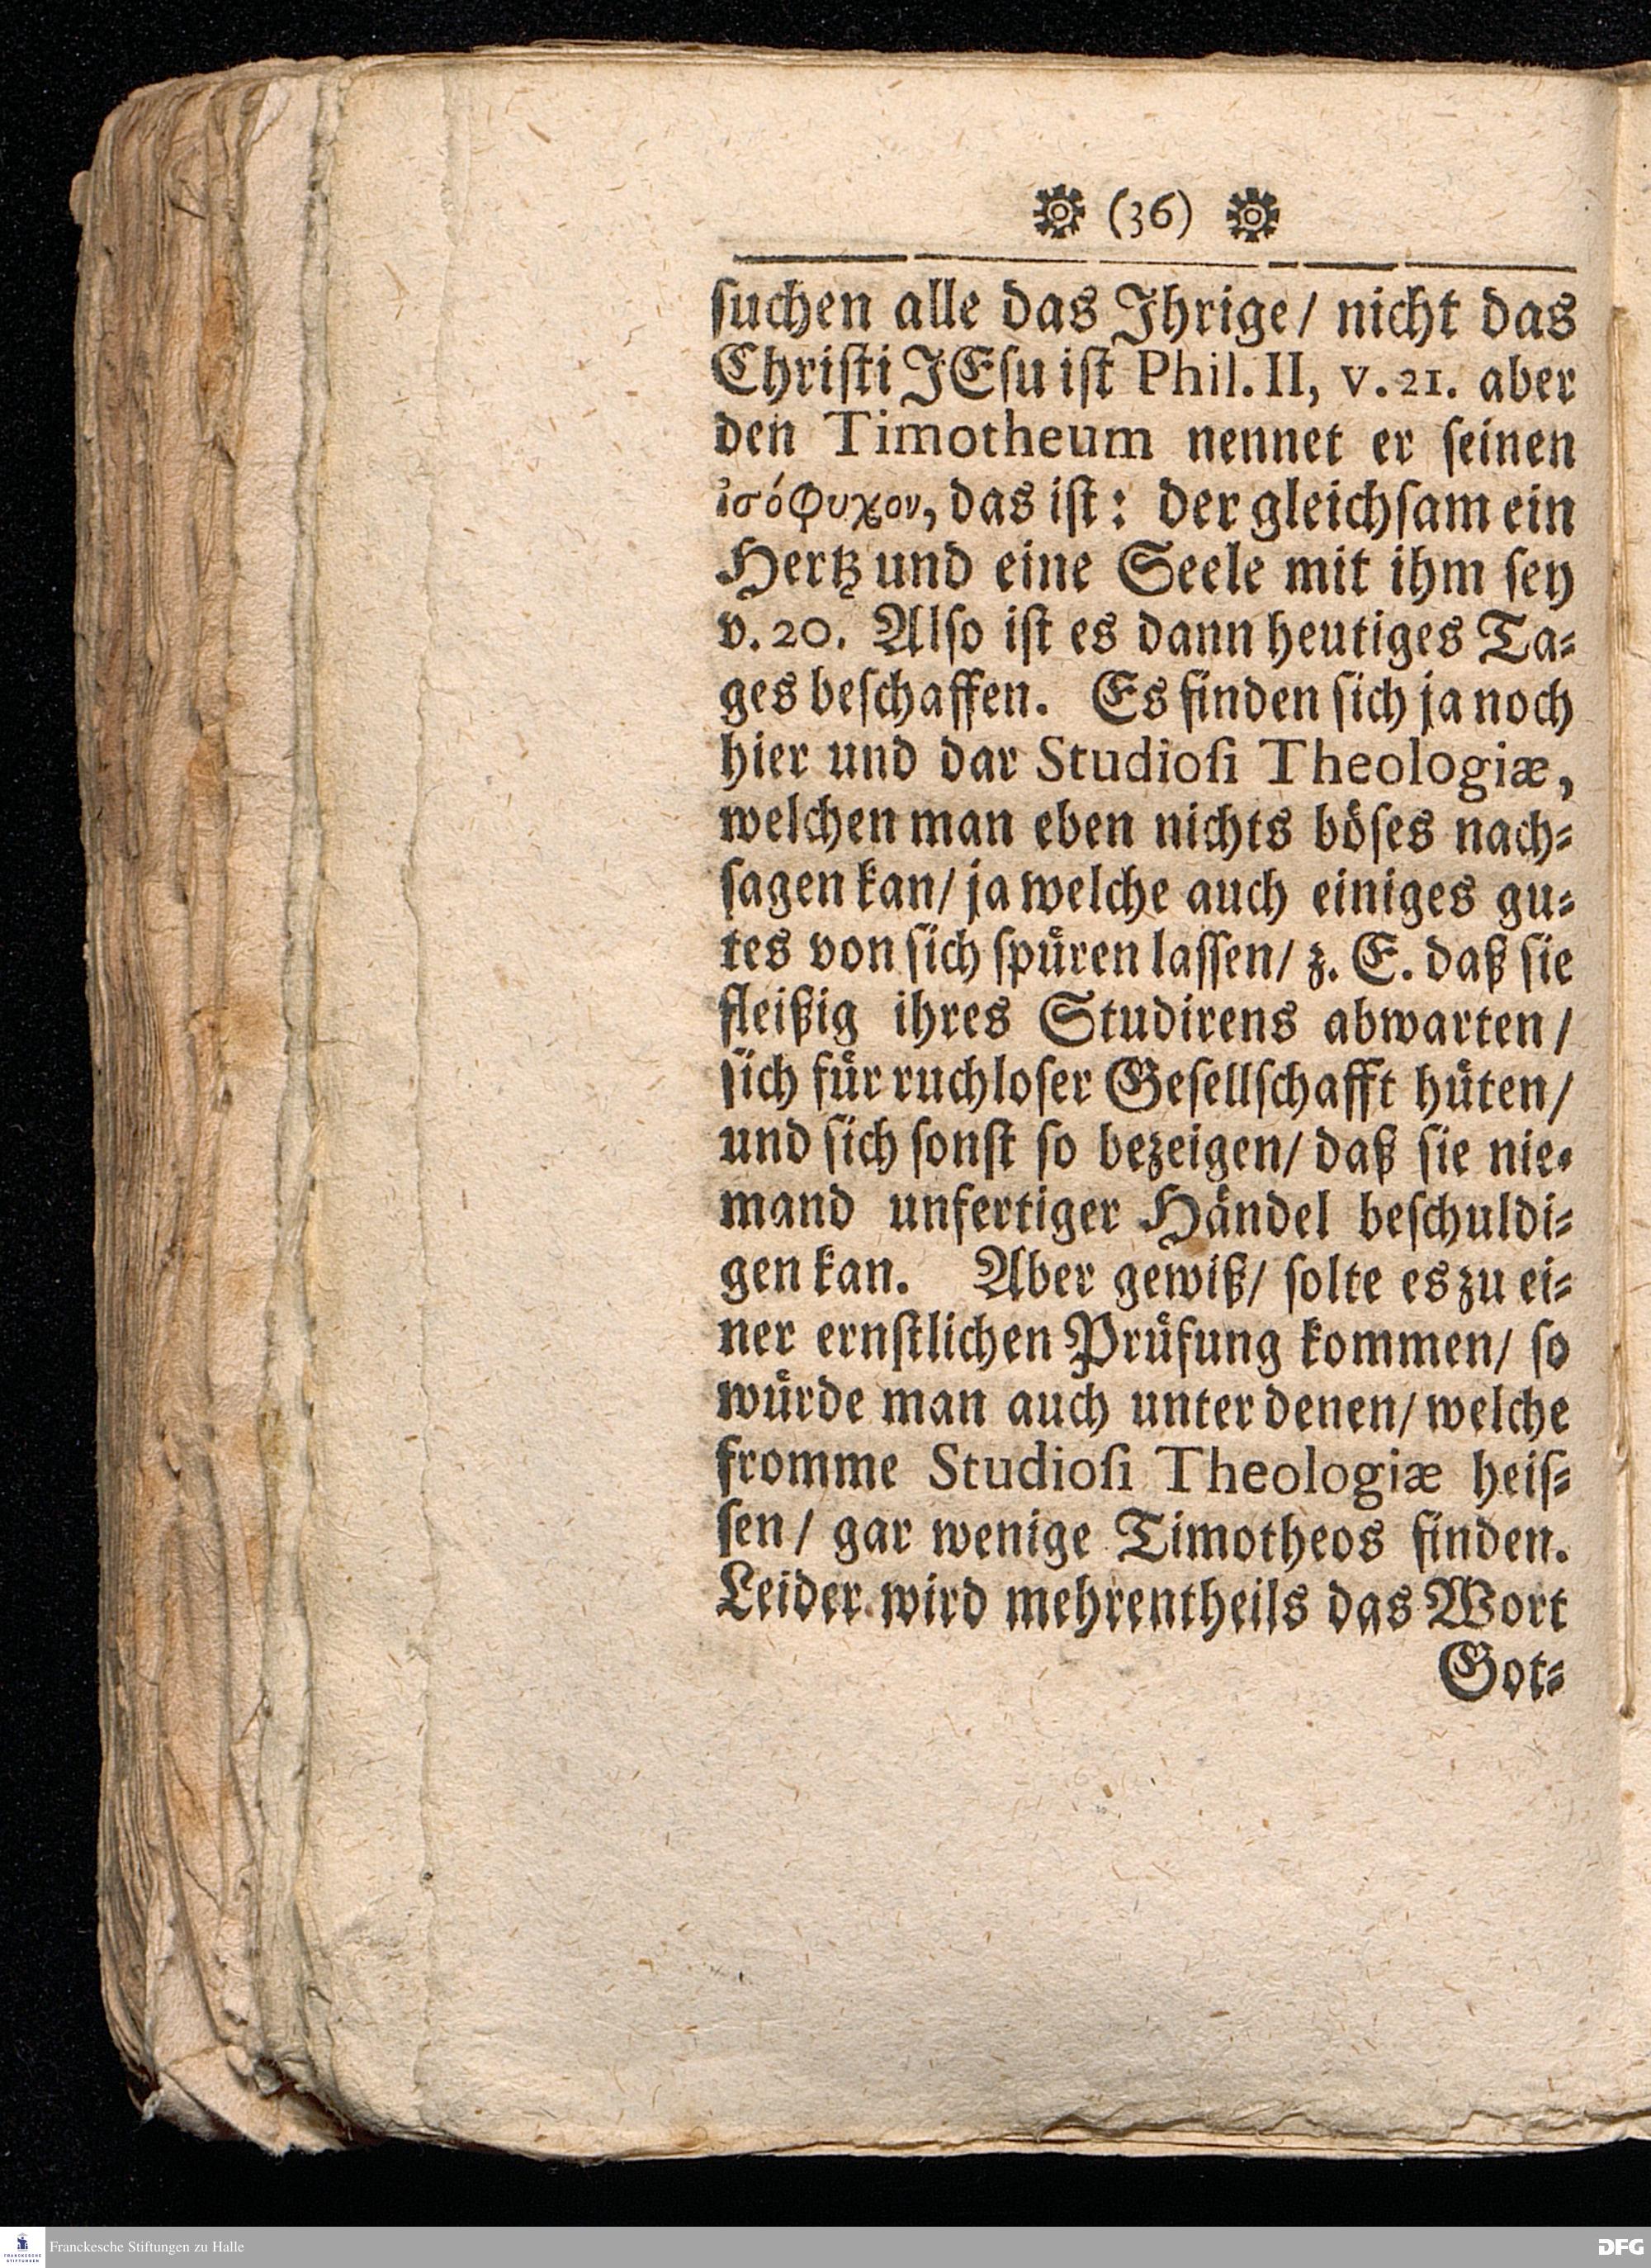 (36)
ſuchen alle das Ihrige/ nicht das
Chriſti JEſu iſt Phil. II, v. 21. aber
den Timotheum nennet er ſeinen
ἰσόφυχον, das iſt: der gleichſam ein
Hertz und eine Seele mit ihm ſey
v. 20. Alſo iſt es dann heutiges Ta⸗
ges beſchaffen. Es finden ſich ja noch
hier und dar Studioſi Theologiæ,
welchen man eben nichts böſes nach⸗
ſagen kan/ ja welche auch einiges gu⸗
tes von ſich ſpüren laſſen/ z. E. daß ſie
fleißig ihres Studirens abwarten/
ſich für ruchloſer Geſellſchafft hüten/
und ſich ſonſt ſo bezeigen/ daß ſie nie⸗
mand unfertiger Händel beſchuldi⸗
gen kan. Aber gewiß/ ſolte es zu ei⸗
ner ernſtlichen Prüfung kommen/ ſo
würde man auch unter denen/ welche
fromme Studioſi Theologiæ heiſ⸗
ſen/ gar wenige Timotheos finden.
Leider wird mehrentheils das Wort
Got⸗
FRANCKESCHE
STIFTUNGEN
Franckesche Stiftungen zu Halle
DFG